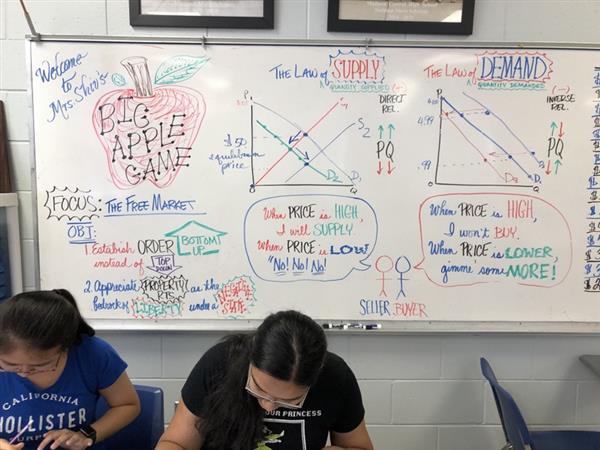 Welcome to
Mrs Shin's
BIG
APPLE
GAME
FOCUS: THE FREE MARKET
OBJ:
1. Establish ORDER BOTTOM UP
instead of TOP DOWN
2. Appreciate PROPERTY RTS as the
bedrock of LIBERTY under a NEGATIVE STATE
THE LAW of SUPPLY
QUANTITY SUPPLIED (+)
DIRECT
REL.
PQ
P
$.50
equilibrium
price
S2
D2
D1
Q
When PRICE is HIGH,
I will SUPPLY.
When PRICE is LOW
"No! No! No!
THE LAW of DEMAND
QUANTITY DEMANDED (-)
INVERSE
REL.
PQ
P
4.99
.99
Q
When PRICE is HIGH,
I won't BUY.
When PRICE is LOWER,
gimme some MORE!
SELLER BUYER
CALIFORNIA
HOLLISTER
OUR PRINCESS